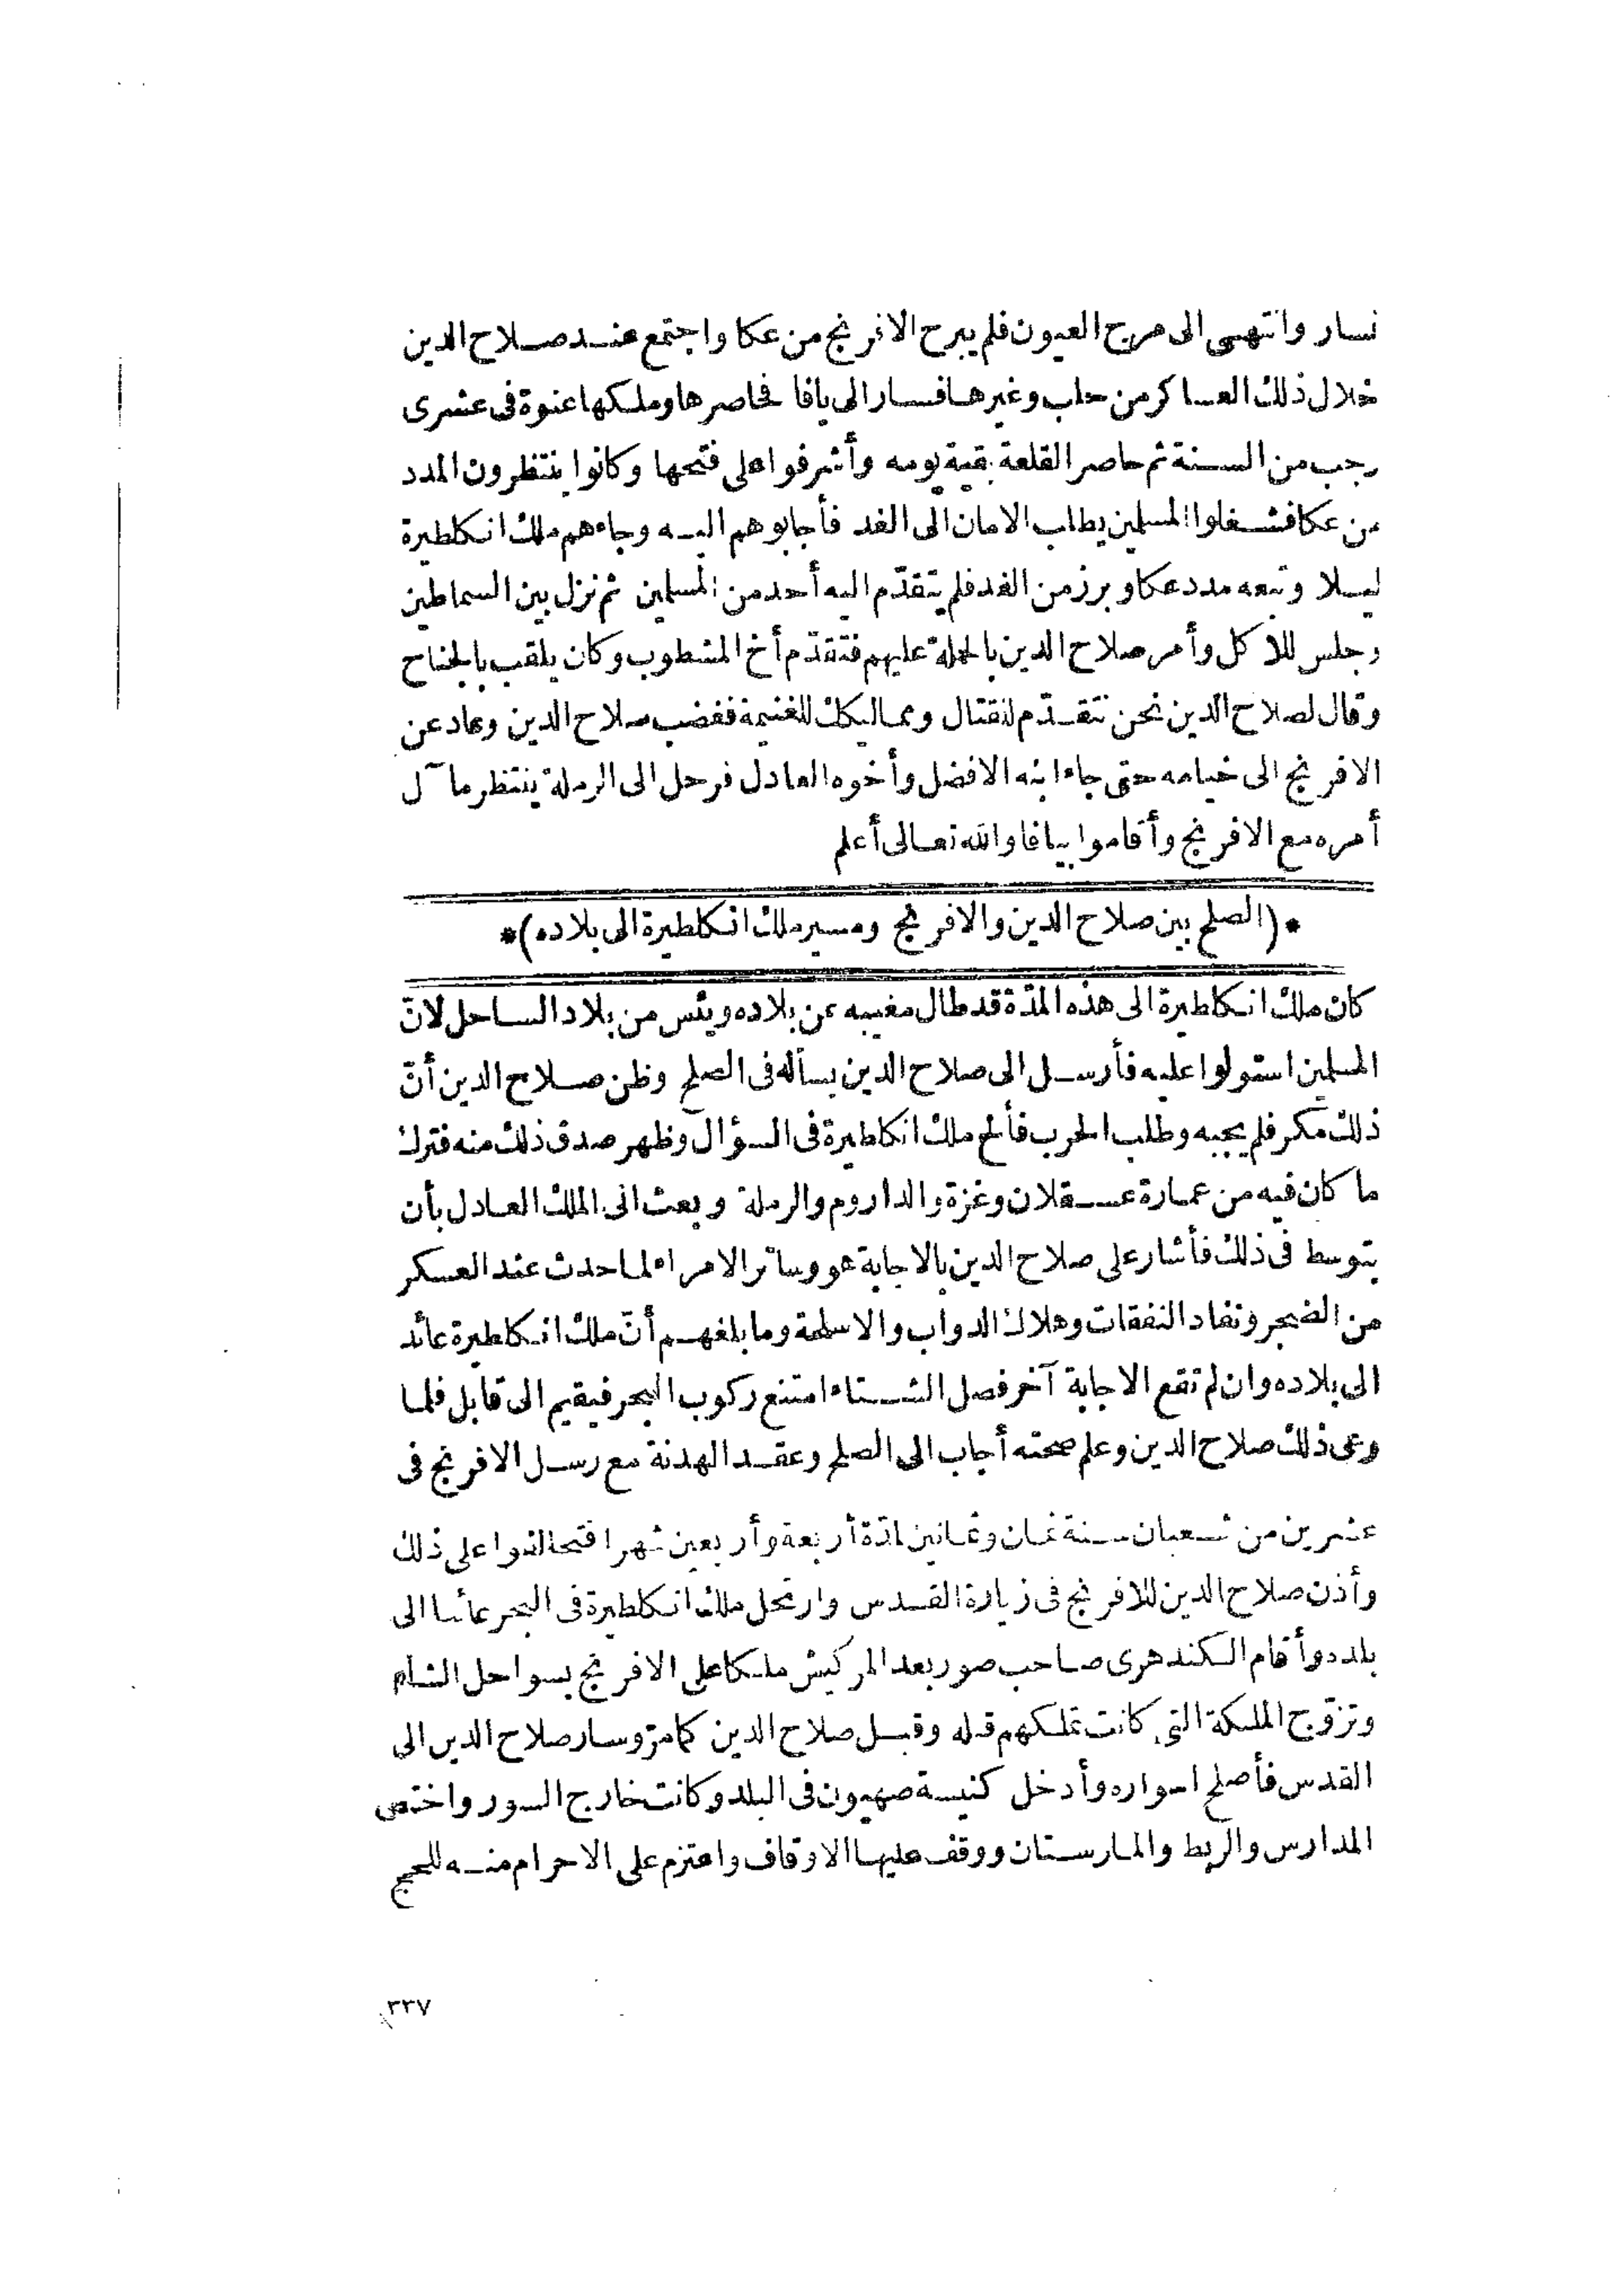 فسار وانتهى الى مرج العيون فلم يبرح الافرنج من عكا واجتمع عند صلاح الدين
خلال ذلك العساكر من حلب وغيرها فسار الى يافا فحاصرها وملكها عنوة فى عشرى
رجب من السنة ثم حاصر القلعة بقية يومه وأشرفوا على فتحها وكانوا ينتظرون المدد
من عكا فشغلوا المسلمين بطلب الامان الى الغد فأجابوهم اليه وجاءهم ملك انكلطيرة
ليلا وتبعه مدد عكا وبرز من الغد فلم يتقدّم اليه أحد من المسلمين ثم نزل بين السماطين
وجلس للاكل وأمر صلاح الدين بالحملة عليهم فتقدّم أخ المشطوب وكان يلقب بالجناح
وقال لصلاح الدين نحن نتقدّم للقتال ومماليكك للغنيمة فغضب صلاح الدين وعاد عن
الافرنج الى خيامه حتى جاء ابنه الافضل وأخوه العادل فرحل الى الرملة ينتظر مآل
أمره مع الافرنج وأقاموا بيافا والله تعالى أعلم
*(الصلح بين صلاح الدين والافرنج ومسير ملك انكلطيرة الى بلاده)*
كان ملك انكلطيرة الى هذه المدّة قد طال مغيبه عن بلاده ويئس من بلاد الساحل لانّ
المسلمين استولوا عليه فأرسل الى صلاح الدين يسأله فى الصلح وظن صلاح الدين أنّ
ذلك مكر فلم يجبه وطلب الحرب فألح ملك انكلطيرة فى السؤال وظهر صدق ذلك منه فترك
ما كان فيه من عمارة عسقلان وغزة والداروم والرملة وبعث الى الملك العادل بأن
يتوسط فى ذلك فأشار على صلاح الدين بالاجابة هو وسائر الامراء لما حدث عند العسكر
من الضجر ونفاد النفقات وهلاك الدواب والاسلحة وما بلغهم أنّ ملك انكلطيرة عائد
الى بلاده وان لم تقع الاجابة آخر فصل الشتاء امتنع ركوب البحر فيقيم الى قابل فلما
وعى ذلك صلاح الدين وعلم صحته أجاب الى الصلح وعقد الهدنة مع رسل الافرنج فى
عشرين من شعبان سنة ثمان وثمانين لمدّة أربعة وأربعين شهرا فتحالفوا على ذلك
وأذن صلاح الدين للافرنج فى زيارة القدس وارتحل ملك انكلطيرة فى البحر عائدا الى
بلده وأقام الكندهرى صاحب صور بعد المركيش ملكا على الافرنج بسواحل الشام
وتزوّج الملكة التى كانت تملكهم قبله وقبل صلاح الدين كما مرّ وسار صلاح الدين الى
القدس فأصلح اسواره وأدخل كنيسة صهيون فى البلد وكانت خارج السور واختص
المدارس والربط والمارستان ووقف عليها الاوقاف واعتزم على الاحرام منه للحج
٣٣٧